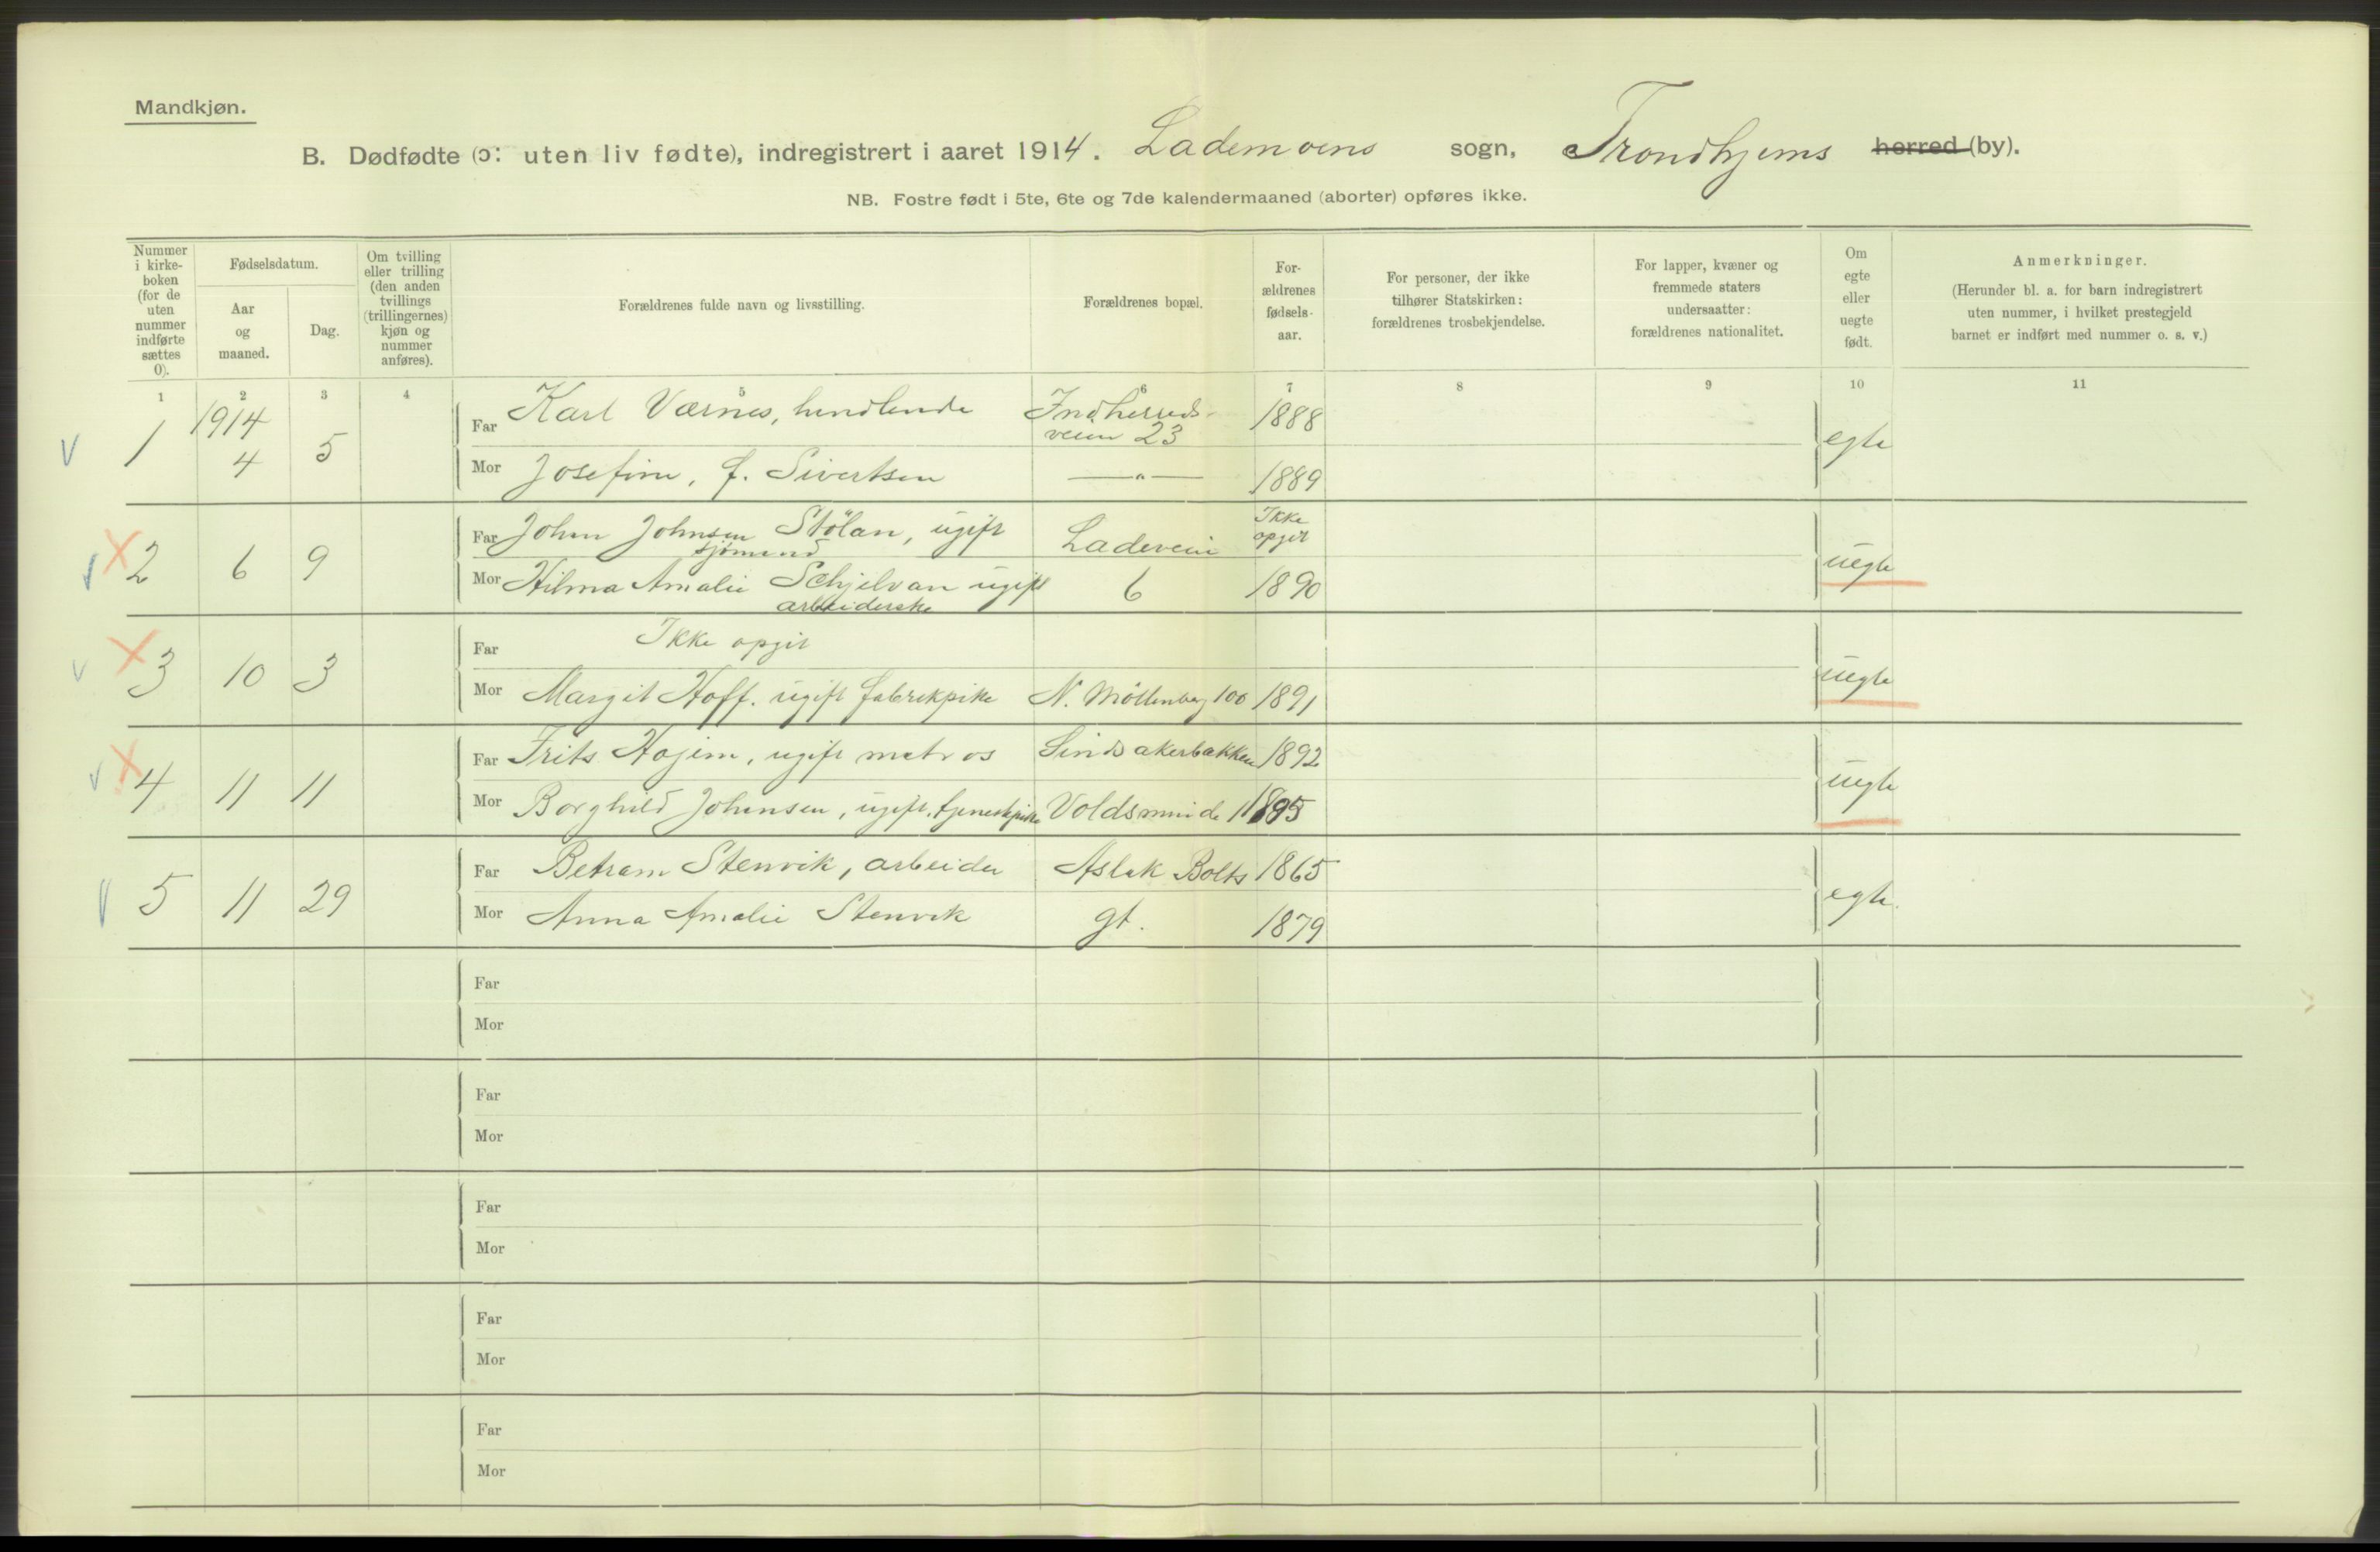 Mandkjøn.
B. Dødfødte (ɔ: uten liv fødte), indregistrert i aaret 1914. Lademoens sogn, Trondhjems herred (by).
NB. Fostre født i 5te, 6te og 7de kalendermaaned (aborter) opføres ikke.
Nummer i kirke- boken (for de uten nummer indførte sættes 0).
Fødselsdatum.
Aar og maaned.
Dag.
Om tvilling eller trilling (den anden tvillings (trillingernes) kjøn og nummer anføres).
Forældrenes fulde navn og livsstilling.
Forældrenes bopæl.
For- ældrenes fødsels- aar.
For personer, der ikke tilhører Statskirken: forældrenes trosbekjendelse.
For lapper, kvæner og fremmede staters undersaatter: forældrenes nationalitet.
Om egte eller uegte født.
Anmerkninger.
(Herunder bl. a. for barn indregistrert uten nummer, i hvilket prestegjeld barnet er indført med nummer o. s. v.)
1 2 3 4 5 6 7 8 9 10 11
1 1914 4 5 Far Karl Værnes, handlende Indherreds- veien 23 1888 egte
Mor Josefine, f. Sivertsen —„— 1889
2 6 9 Far Johan Johnsen Stölan, ugift Ladeveien Ikke opgit uegte
sjömand
Mor Hilma Amalie Schjelvan ugift 6 1890
arbeiderske
3 10 3 Far Ikke opgit uegte
Mor Margit Hoff. ugift fabrikpike N. Möllenberg 100 1891
4 11 11 Far Frits Hojem, ugift matros Lindsakerbakken 1892 uegte
Mor Borghild Johansen, ugift, tjenestepike Voldsminde 11 1895
5 11 29 Far Betram Stenvik, arbeider Aslak Bolts 1865 egte.
Mor Anna Amalie Stenvik gt. 1879
Far
Mor
Far
Mor
Far
Mor
Far
Mor
Far
Mor